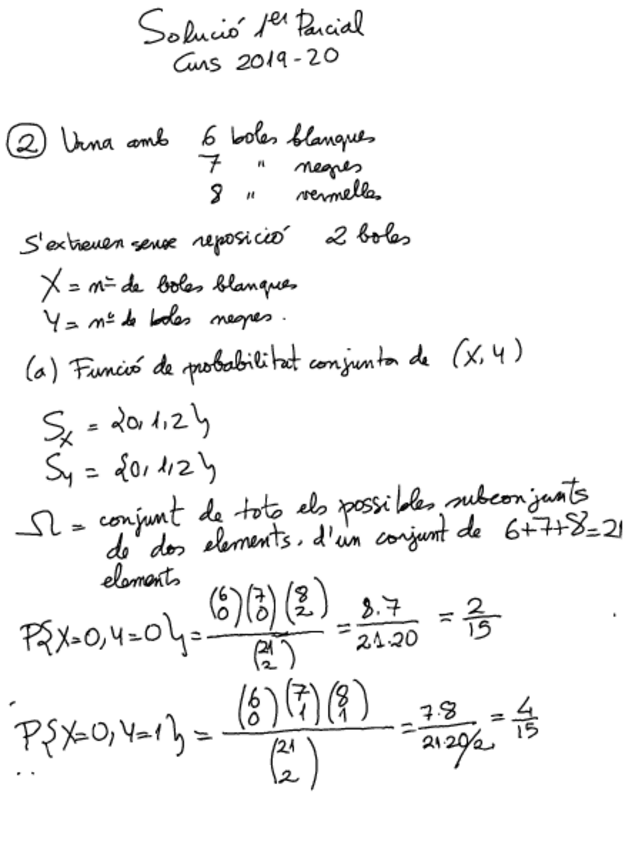 Solució 1er Parcial
Curs 2019-20
② Urna amb 6 boles blanques
7 " negres
8 " vermelles
S'extreuen sense reposició 2 boles
X = nº de boles blanques
Y = nº de boles negres.
(a) Funció de probabilitat conjunta de (X,Y)
S_X = {0,1,2}
S_Y = {0,1,2}
Ω = conjunt de tots els possibles subconjunts
de dos elements, d'un conjunt de 6+7+8=21
elements
P{X=0,Y=0} = (6 0)(7 0)(8 2) / (21 2) = 8.7 / 21.20 = 2/15
P{X=0,Y=1} = (6 0)(7 1)(8 1) / (21 2) = 7.8 / 21.20/2 = 4/15